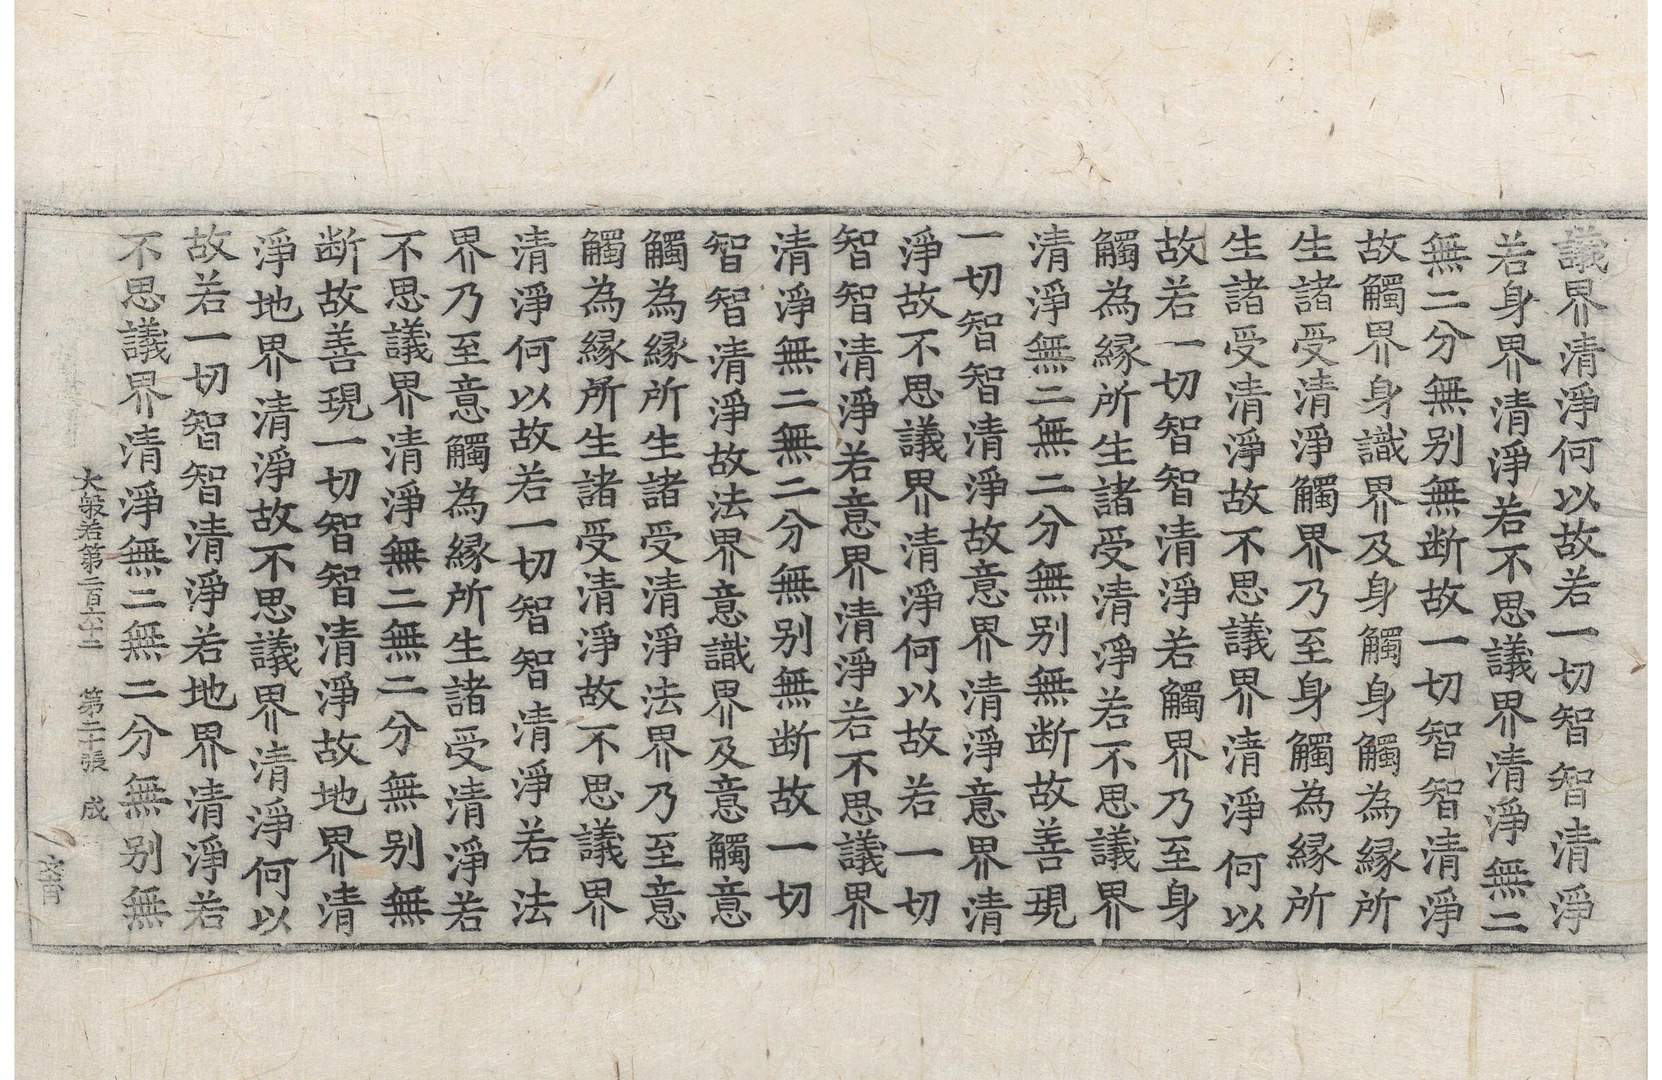 議界清淨何以故若一切智智清淨
若身界清淨若不思議界清淨無二
無二分無别無断故一切智智清淨
故觸界身識界及身觸身觸為縁所
生諸受清淨觸界乃至身觸為縁所
生諸受清淨故不思議界清淨何以
故若一切智智清淨若觸界乃至身
觸為縁所生諸受清淨若不思議界
清淨無二無二分無别無断故善現
一切智智清淨故意界清淨意界清
淨故不思議界清淨何以故若一切
智智清淨若意界清淨若不思議界
清淨無二無二分無别無断故一切
智智清淨故法界意識界及意觸意
觸為縁所生諸受清淨法界乃至意
觸為縁所生諸受清淨故不思議界
清淨何以故若一切智智清淨若法
界乃至意觸為縁所生諸受清淨若
不思議界清淨無二無二分無别無
断故善現一切智智清淨故地界清
淨地界清淨故不思議界清淨何以
故若一切智智清淨若地界清淨若
不思議界清淨無二無二分無别無
大般若第二百六十二 第二十張 成